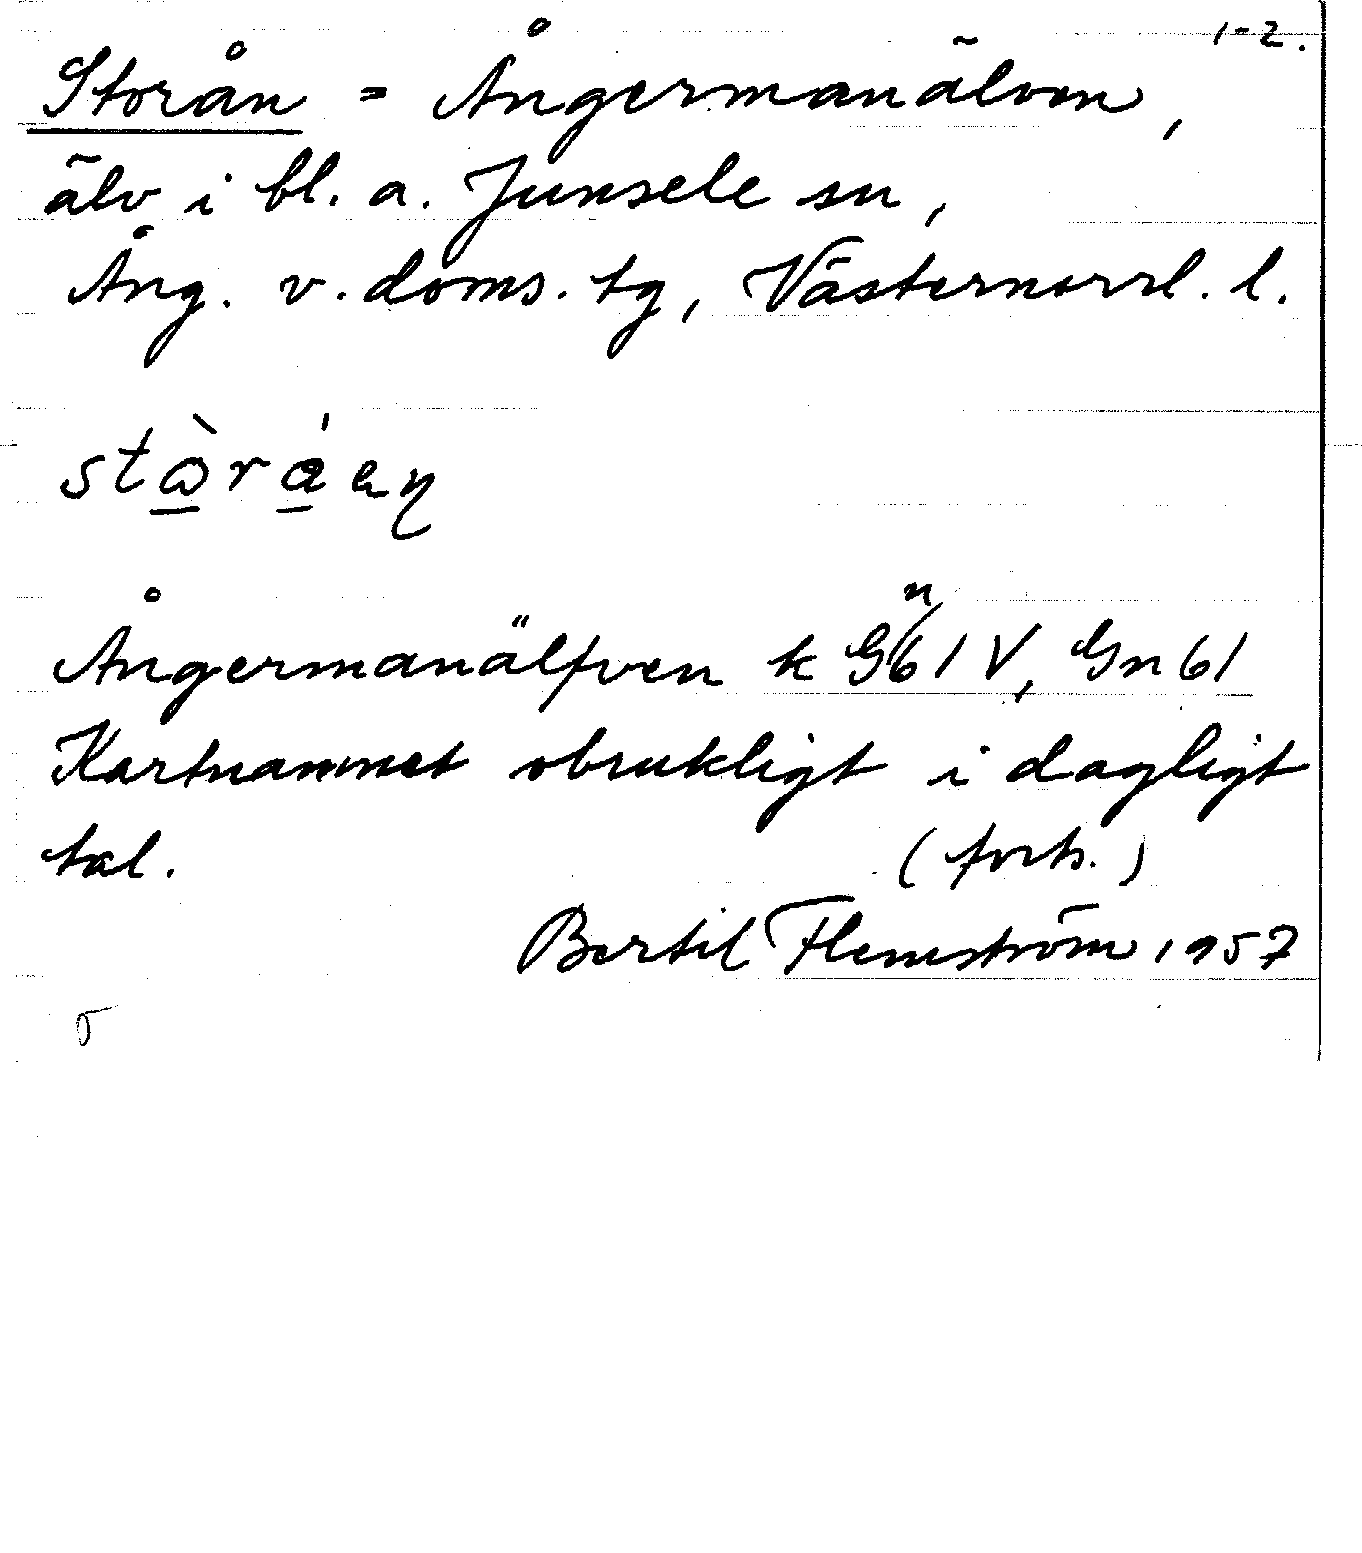 1-2.
Storån = Ångermanälven,
älv i bl. a. Junsele sn,
Ång. v. doms. tg, Västernorrl. l.
Ångermanälfven k Gn61V, Gn61
Kartnamnet obrukligt i dagligt
tal. (forts.)
Bertil Flemström 1957